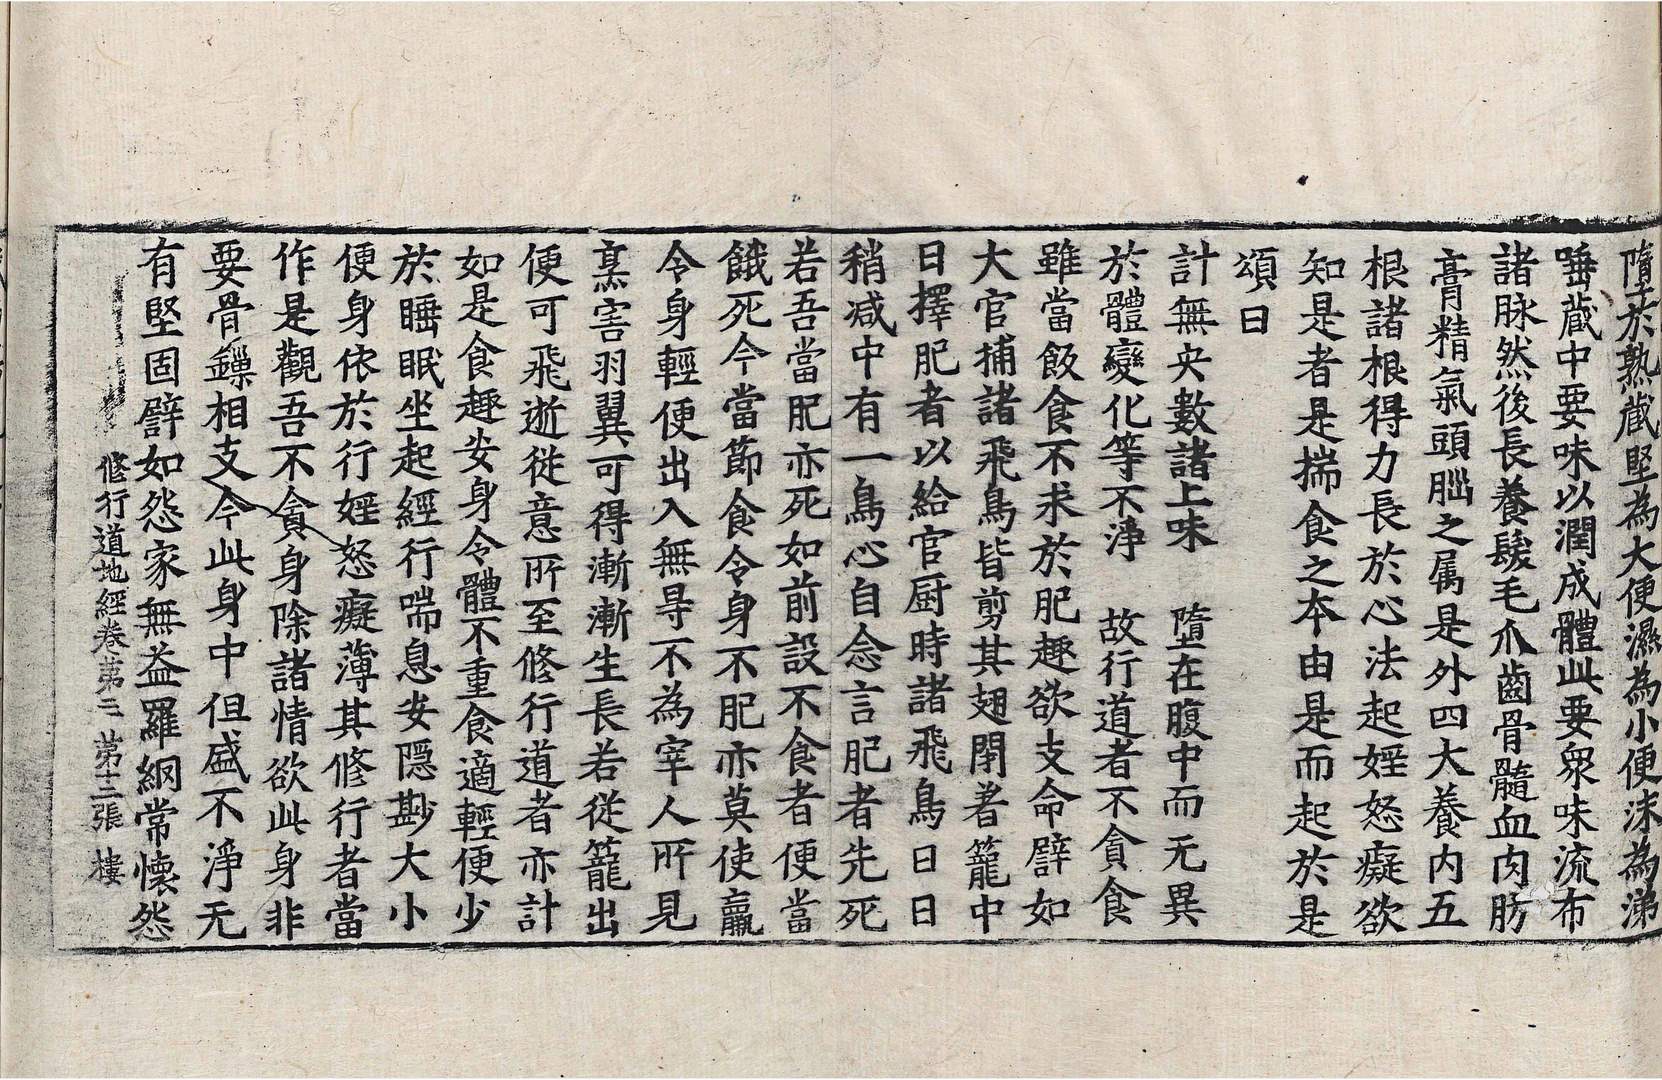 墮於熟蔵堅為大便濕為小便沫為涕
唾蔵中要味以潤成體此要衆味流布
諸脉然後長養髮毛爪齒骨髓血肉肪
膏精氣頭腦之属是外四大養内五
根諸根得力長於心法起婬怒癡欲
知是者是揣食之本由是而起於是
頌曰
計無央數諸上味　墮在腹中而无異
於體變化等不淨　故行道者不貪食
雖當飯食不求於肥趣欲支命譬如
大官捕諸飛鳥皆剪其翅閉著籠中
日擇肥者以給官厨時諸飛鳥日日
稍减中有一鳥心自念言肥者先死
若吾當肥亦死如前設不食者便當
餓死今當節食令身不肥亦莫使羸
令身輕便出入無㝵不為宰人所見
烹害羽翼可得漸漸生長若從籠出
便可飛逝從意所至修行道者亦計
如是食趣安身令體不重食適輕便少
於睡眠坐起經行喘息安隱尠大小
便身依於行婬怒癡薄其修行者當
作是觀吾不貪身除諸情欲此身非
要骨鏁相支今此身中但盛不淨无
有堅固譬如怨家無益羅網常懷怨
修行道地經卷第二　第十二張　樓